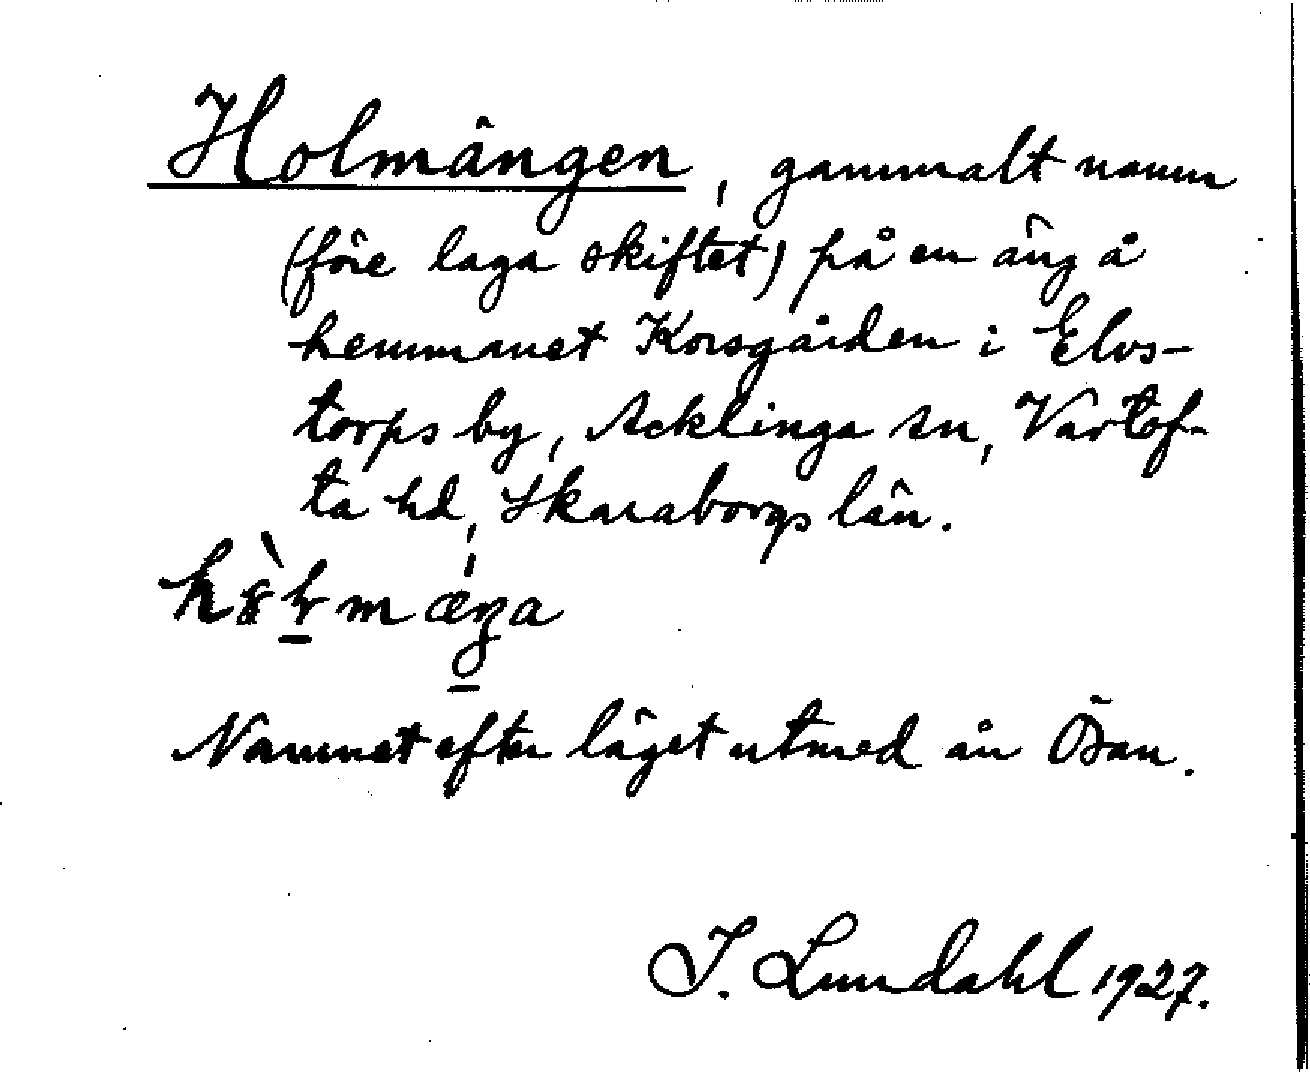 Holmängen, gammalt namn
(före laga skiftet) på en äng å
hemmanet Korsgården i Elvs-
torps by, Acklinga sn, Vartof-
ta hd, Skaraborgs län.
Namnet efter läget utmed ån Ösan.
I. Lundahl 1927.